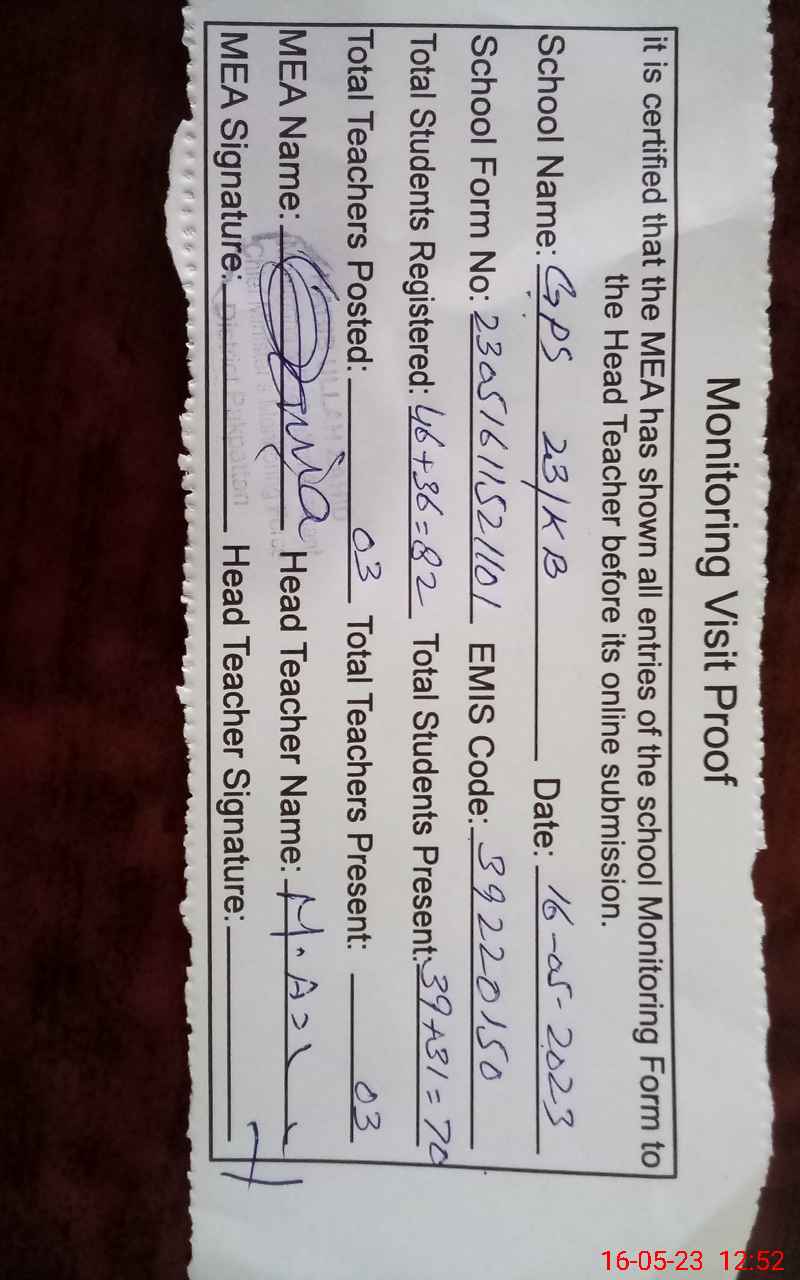 Monitoring Visit Proof
it is certified that the MEA has shown all entries of the school Monitoring Form to
the Head Teacher before its online submission.
School Name: GPS 23/KB Date: 16-05-2023
School Form No: 23051611521101 EMIS Code: 39220150
Total Students Registered: 46+36=82 Total Students Present: 39+31=70
Total Teachers Posted: 03 Total Teachers Present: 03
MEA Name: Head Teacher Name: M.
MEA Signature: Head Teacher Signature:
District Pakpattan
16-05-23 12:52